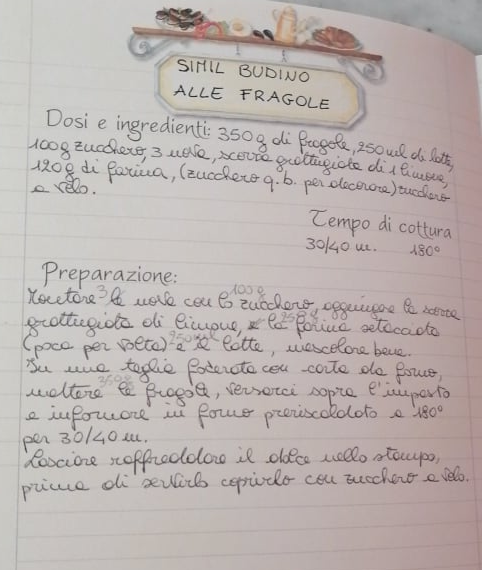 SIMIL BUDINO
ALLE FRAGOLE
Dosi e ingredienti: 350g di fragole, 250 ml di latte,
100g zucchero, 3 uova, scorza grattugiata di 1 limone,
120g di farina, (zucchero q.b. per decorare) zucchero
a velo.
Tempo di cottura
30/40 m. 180°
Preparazione:
100g
Montare 3 le uova con lo zucchero, aggiungere la scorza
grattugiata di limone, e la farina setacciata
(poca per volta) e il latte, mescolare bene.
In una teglia foderata con carta da forno,
350g
mettere le fragole, versarci sopra l'impasto
e infornare in forno preriscaldato a 180°
per 30/40 m.
Lasciare raffreddare il dolce nello stampo,
prima di servirlo coprirlo con zucchero a velo.